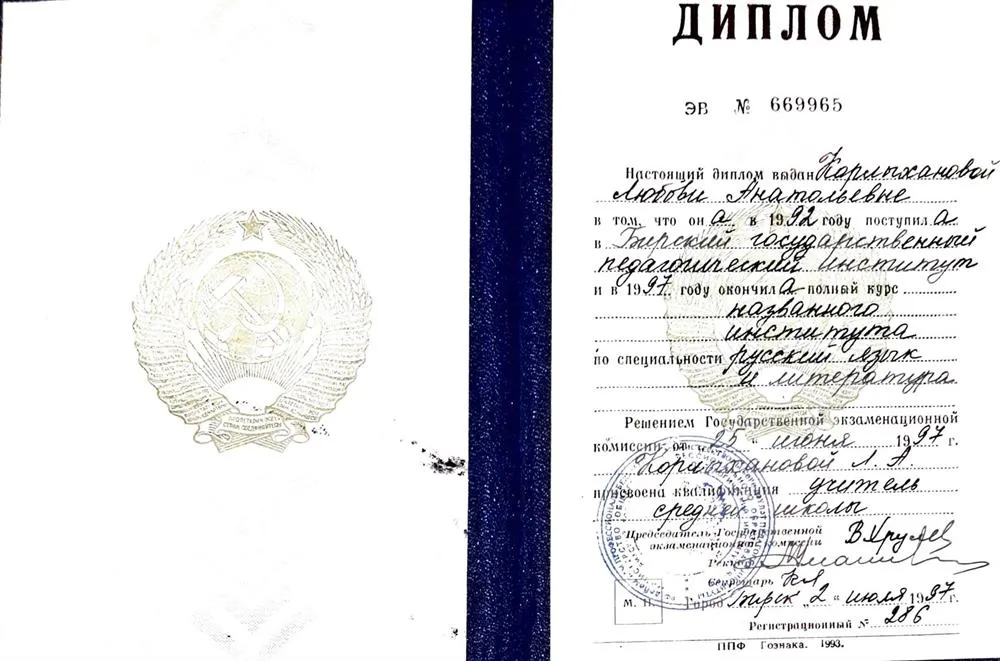 ПРОЛЕТАРИИ ВСЕХ
СТРАН, СОЕДИНЯЙТЕСЬ!
ДИПЛОМ
ЭВ № 669965
Настоящий диплом выдан Корлыхановой
Любови Анатольевне
в том, что она в 1992 году поступила
в Бирский государственный
педагогический институт
и в 1997 году окончила полный курс
названного
института
по специальности русский язык
и литература
Решением Государственной экзаменационной
комиссии от „25“ июня 1997 г.
Корлыхановой Л. А.
присвоена квалификация учитель
средней школы
Председатель Государственной
экзаменационной комиссии
Ректор
Секретарь
М. П. Город Бирск „2“ июля 1997 г.
Регистрационный № 286
ППФ Гознака. 1993.